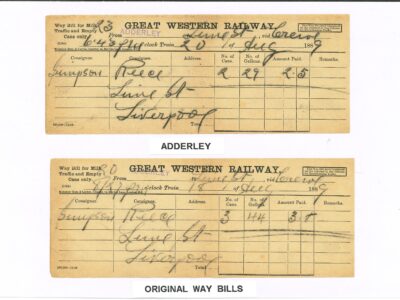 Way Bill for Milk
Traffic and Empty
Cans only.
23
GREAT WESTERN RAILWAY.
From ADDERLEY Lime St, via Crewe
6.45 PM o'clock Train 20 1st Aug 1889
Consignor. Consignee. Address. No. of Cans. No. of Gallons. Amount Paid. Remarks.
Simpson Reece 2 29 2.5
Lime St
Liverpool
Total
ADDERLEY
Way Bill for Milk
Traffic and Empty
Cans only.
20
GREAT WESTERN RAILWAY.
From Lime St, via Crewe
o'clock Train 18 1st Aug 1889
Consignor. Consignee. Address. No. of Cans. No. of Gallons. Amount Paid. Remarks.
Simpson Reece 3 44 3.8
Lime St
Liverpool
Total
ORIGINAL WAY BILLS